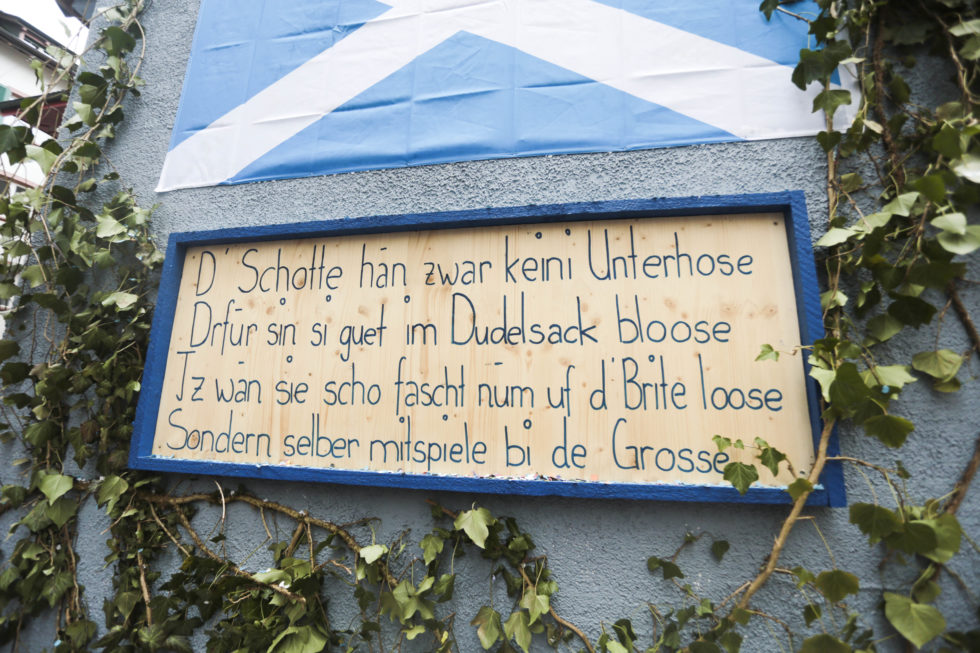 D' Schotte hän zwar keini Unterhose
Drfür sin si guet im Dudelsack bloose
Jz wän sie scho fascht nüm uf d'Brite loose
Sondern selber mitspiele bi de Grosse